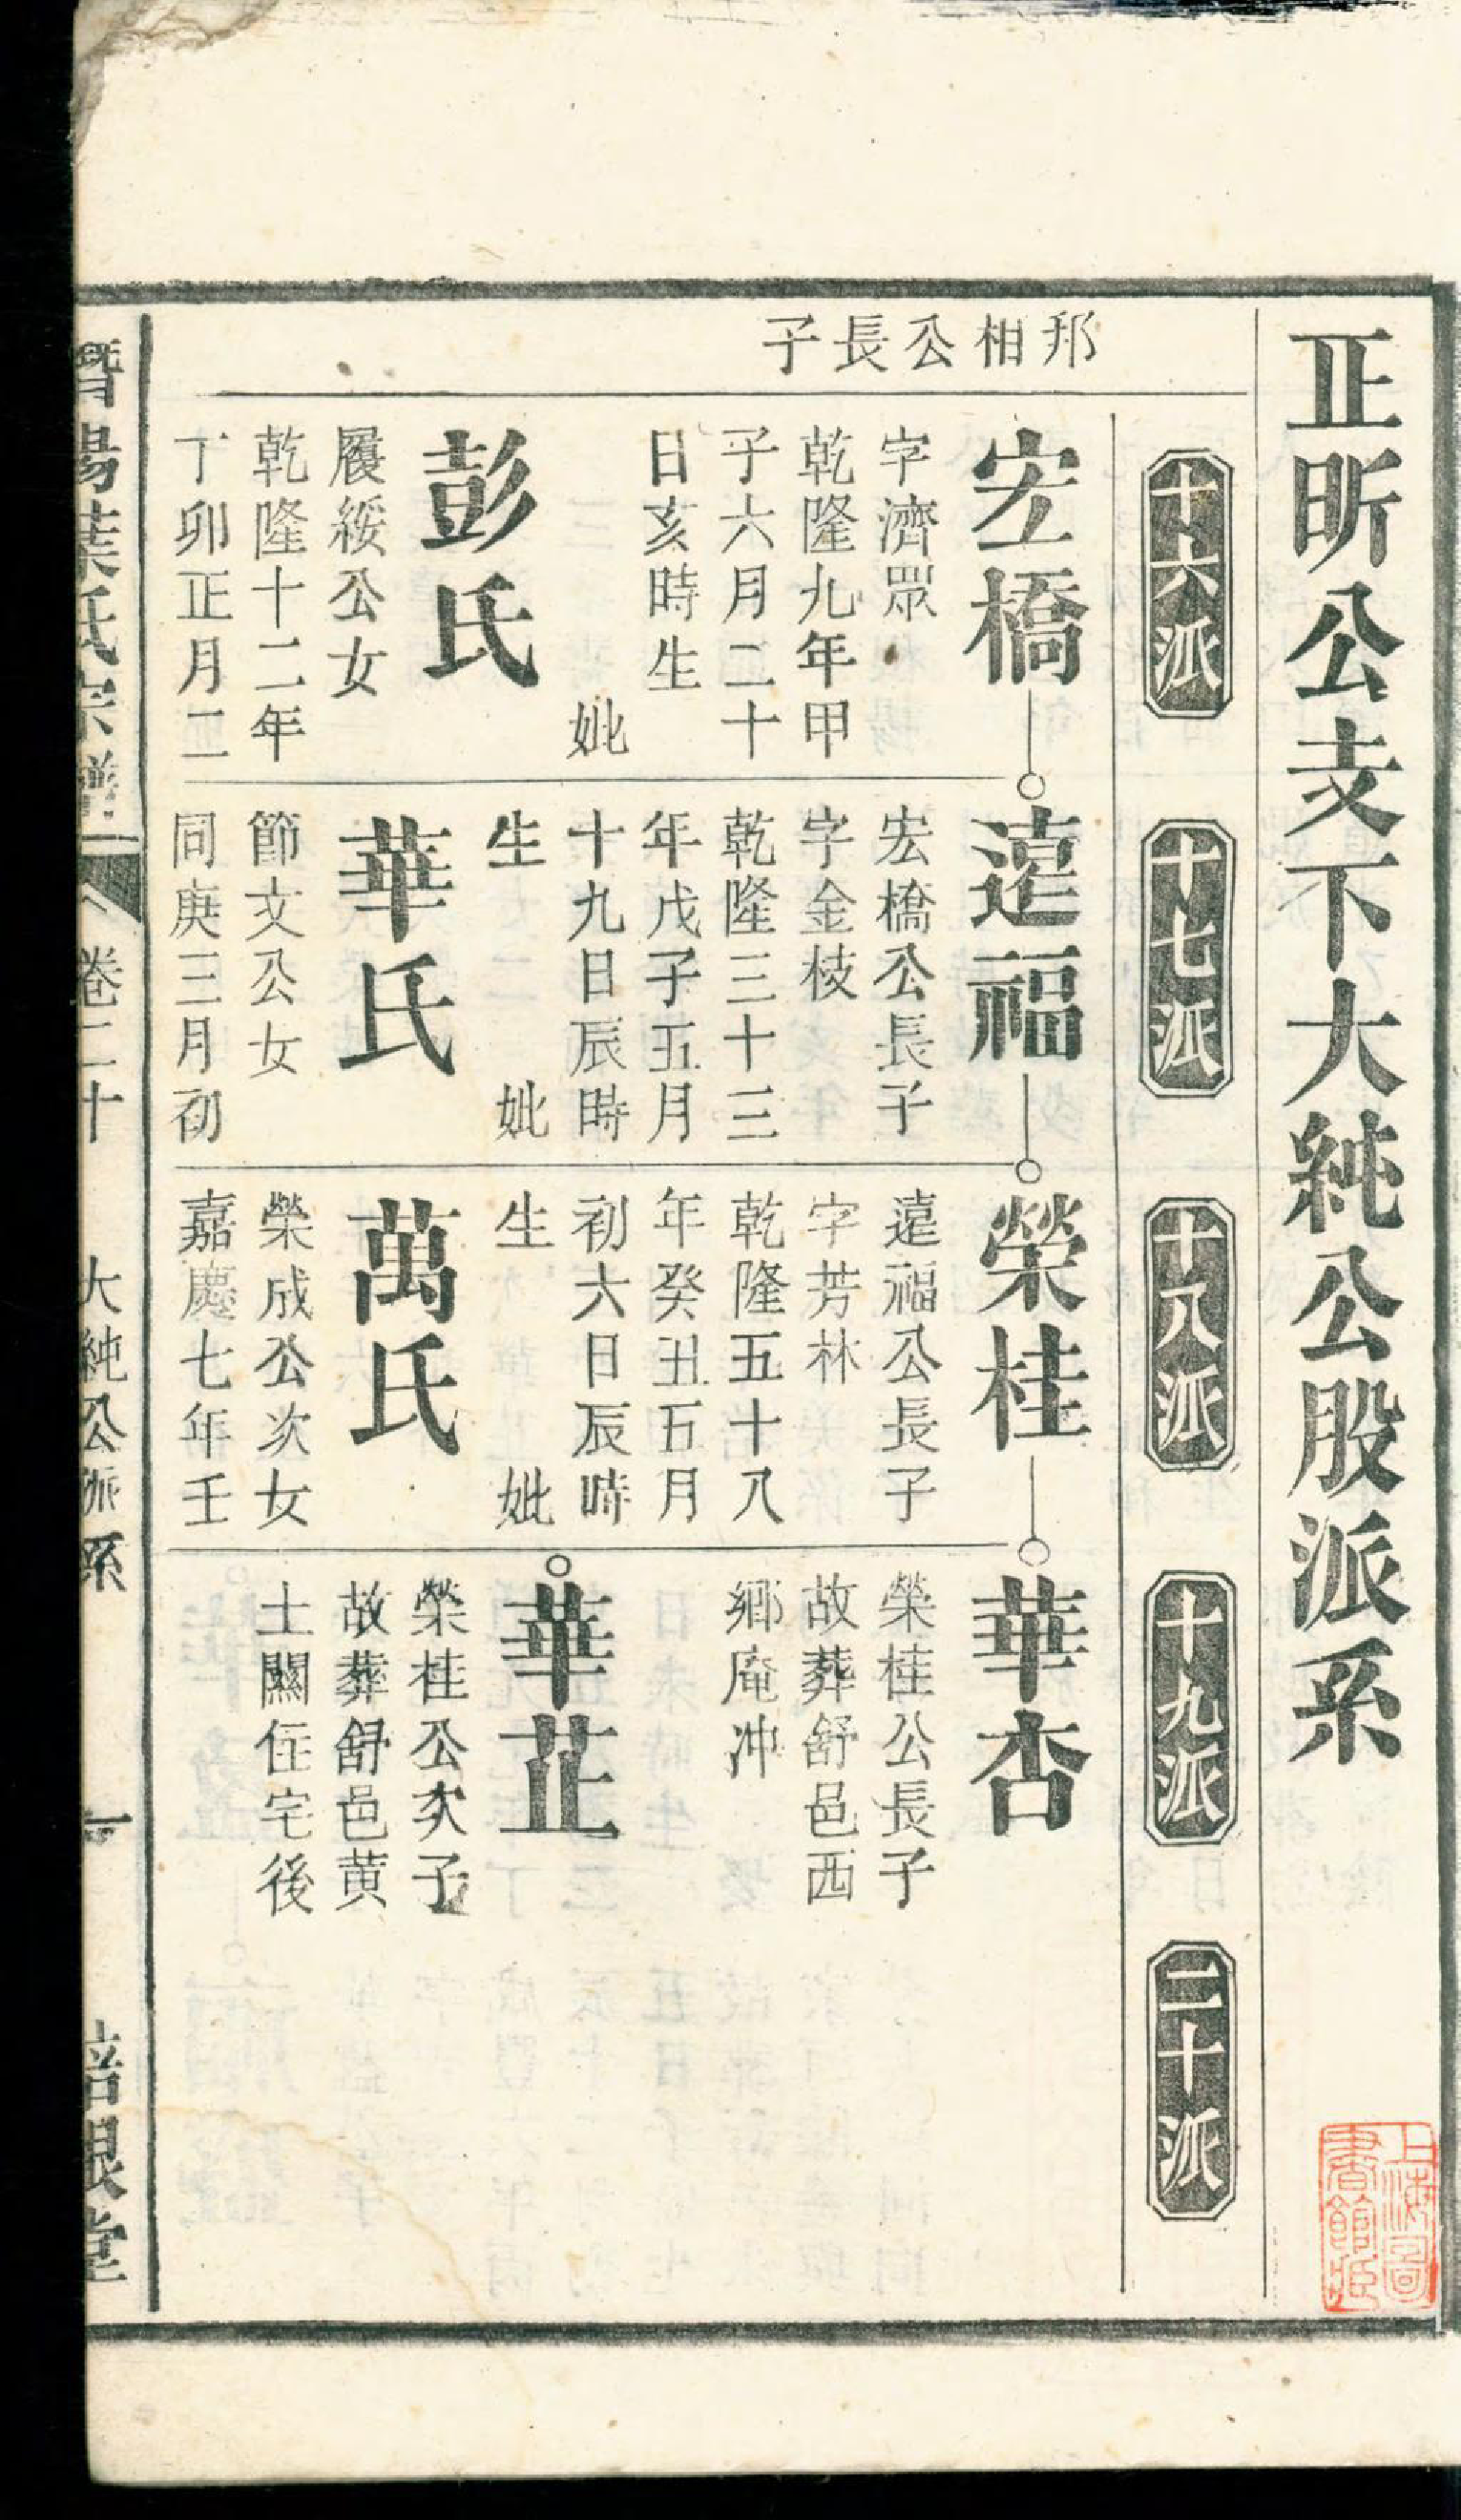 正昕公支下大純公股派系
十六派
十七派
十八派
十九派
二十派
邦相公長子
宏橋
字濟眾
乾隆九年甲
子六月二十
日亥時生
妣
彭氏
履綏公女
乾隆十二年
丁卯正月二
遠福
宏橋公長子
字金枝
乾隆三十三
年戊子五月
十九日辰時
生 妣
華氏
節文公女
同庚三月初
榮桂
遠福公長子
字芳林
乾隆五十八
年癸丑五月
初六日辰時
生 妣
萬氏
榮成公次女
嘉慶七年壬
華杏
榮桂公長子
故葬舒邑西
鄉庵冲
華芷
榮桂公次子
故葬舒邑黄
土關住宅後
葉氏宗譜
卷二十
大純公派系
一
培根堂
上海圖
書館藏